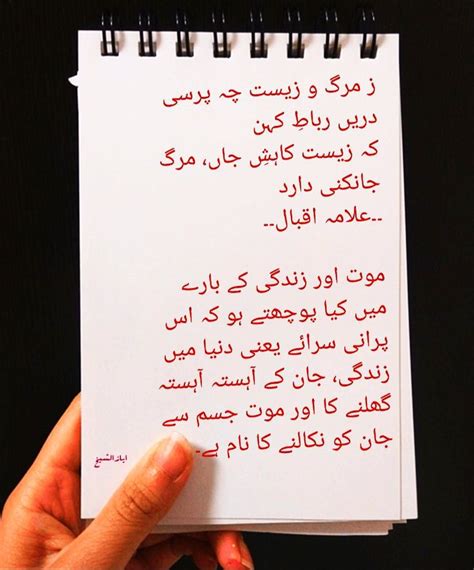 ز مرگ و زیست چہ پرسی
دریں رباطِ کہن
کہ زیست کاہشِ جاں، مرگ
جانکنی دارد
--علامہ اقبال--
موت اور زندگی کے بارے
میں کیا پوچھتے ہو کہ اس
پرانی سرائے یعنی دنیا میں
زندگی، جان کے آہستہ آہستہ
گھلنے کا اور موت جسم سے
جان کو نکالنے کا نام ہے۔
ایاز الشیخ